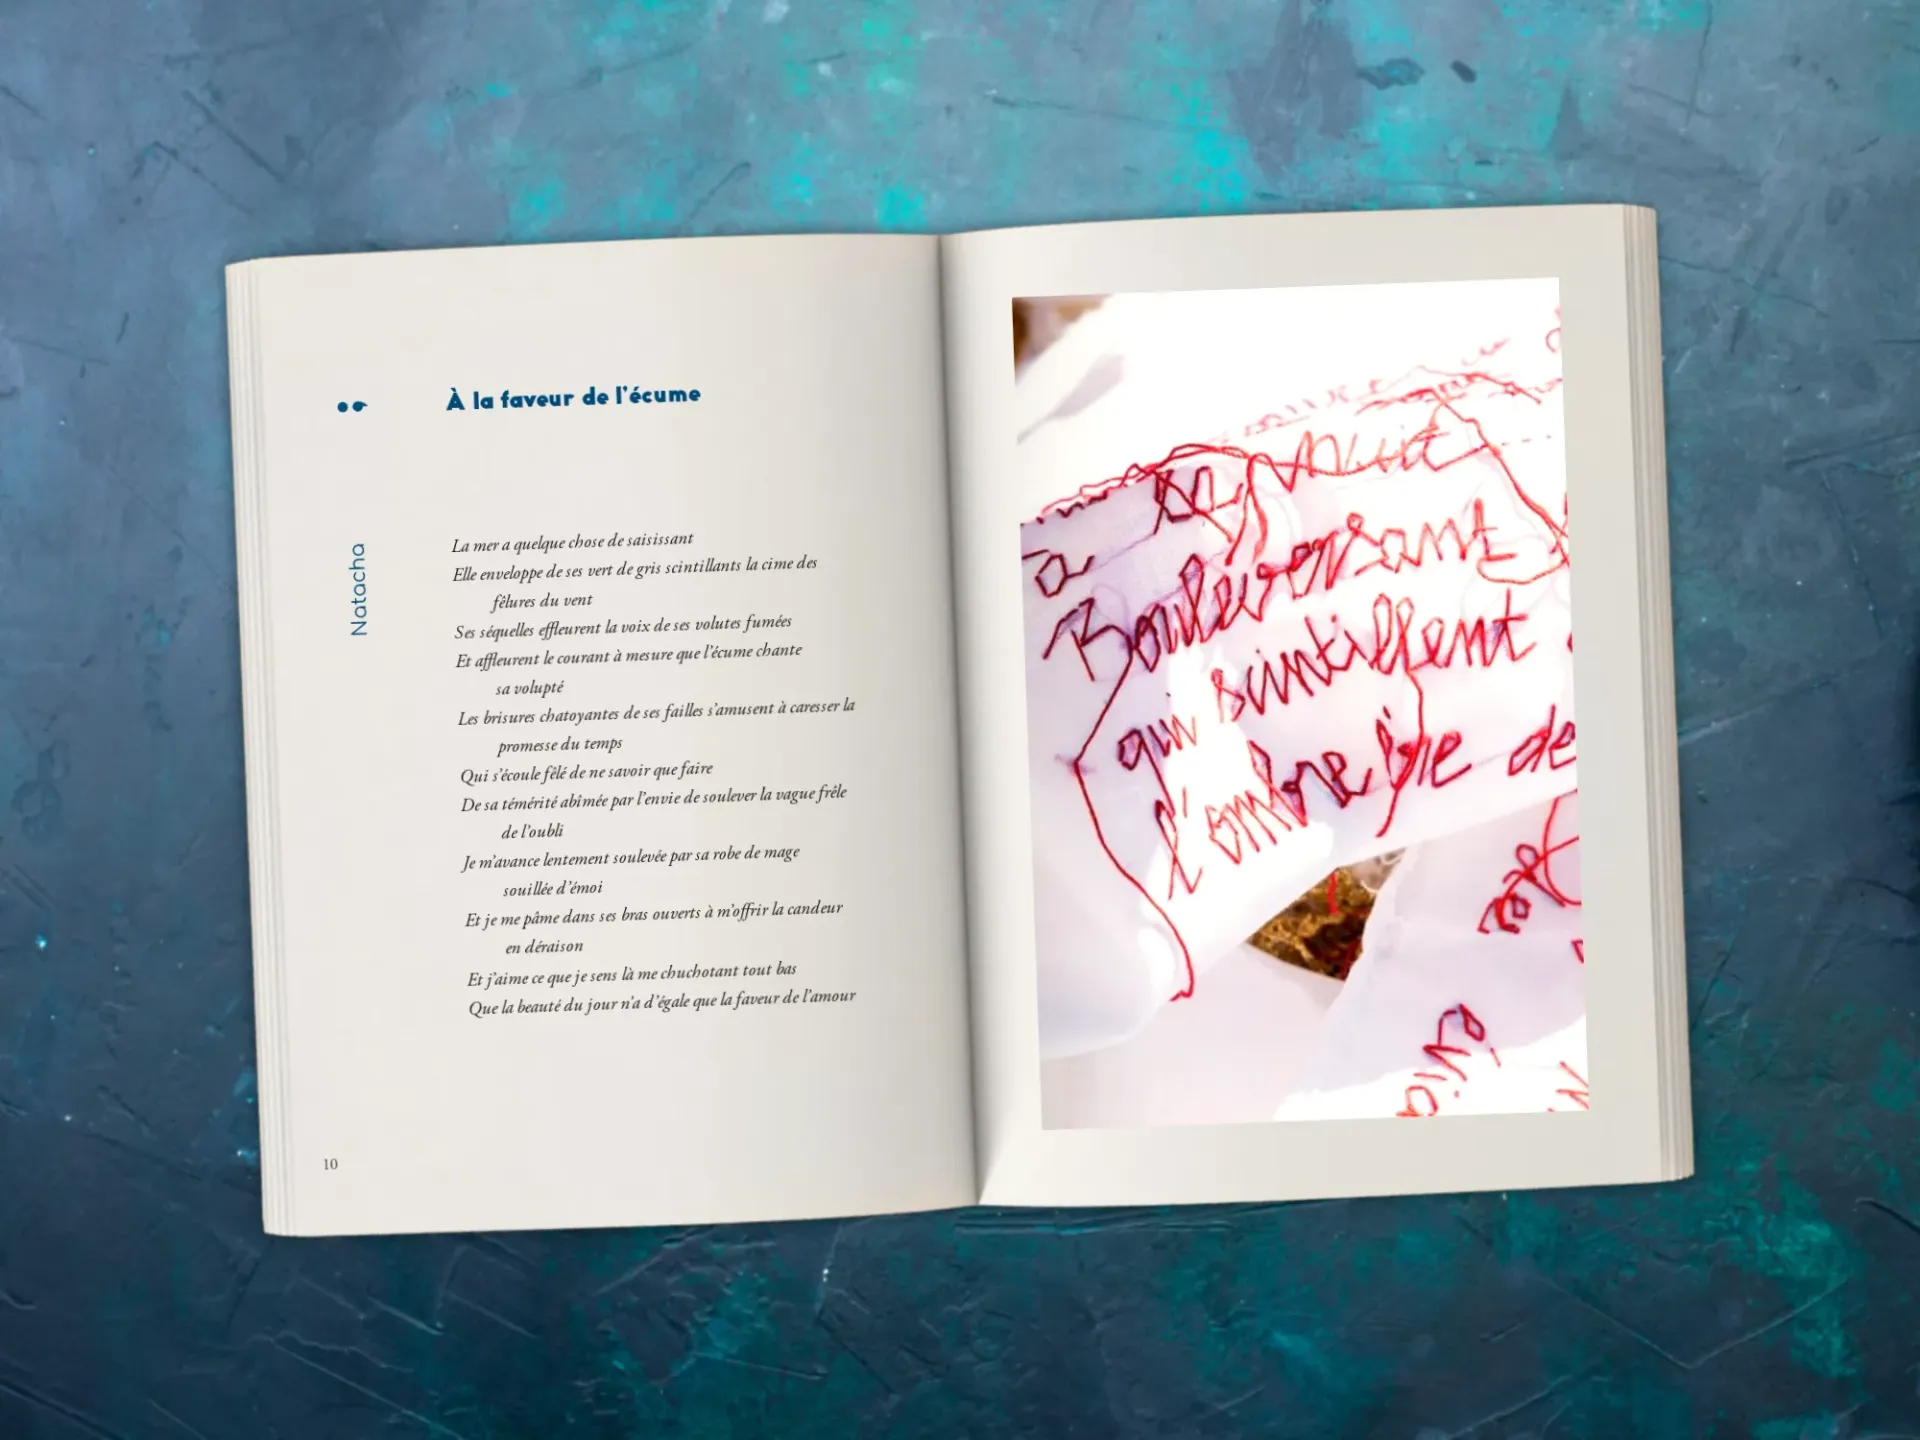 À la faveur de l'écume
Natacha
La mer a quelque chose de saisissant
Elle enveloppe de ses vert de gris scintillants la cime des
fêlures du vent
Ses séquelles effleurent la voix de ses volutes fumées
Et affleurent le courant à mesure que l'écume chante
sa volupté
Les brisures chatoyantes de ses failles s'amusent à caresser la
promesse du temps
Qui s'écoule fêlé de ne savoir que faire
De sa témérité abîmée par l'envie de soulever la vague frêle
de l'oubli
Je m'avance lentement soulevée par sa robe de mage
souillée d'émoi
Et je me pâme dans ses bras ouverts à m'offrir la candeur
en déraison
Et j'aime ce que je sens là me chuchotant tout bas
Que la beauté du jour n'a d'égale que la faveur de l'amour
10
la nuit
a
Bouleversant
qui scintillent
l'ombre de